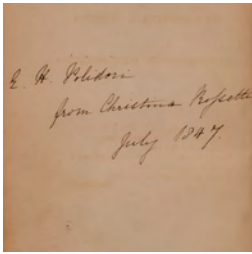 E. H. Polidori
from Christina Rossetti
July 1847.